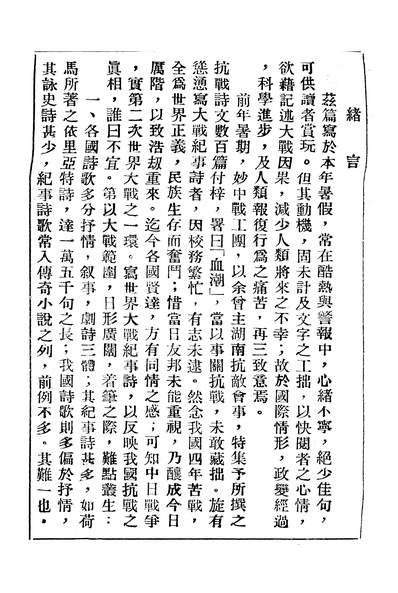 緒言
茲篇寫於本年暑假，常在酷熱與警報中，心緒不寧，絕少佳句，
可供讀者賞玩。但其動機，固未計及文字之工拙，以快閱者之心情，
欲藉記述大戰因果，減少人類將來之不幸；故於國際情形，政變經過
，科學進步，及人類報復行為之痛苦，再三致意焉。
前年暑期，妙中戰工團，以余曾主湖南抗敵會事，特集予所撰之
抗戰詩文數百篇付梓，署曰「血潮」，當以事關抗戰，未敢藏拙。旋有
慫恿寫大戰紀事詩者，因校務繁忙，有志未逮。然念我國四年苦戰，
全為世界正義，民族生存而奮鬥；惜當日友邦未能重視，乃釀成今日
厲階，以致浩刧重來。迄今各國賢達，方有同情之感；可知中日戰爭
，實第二次世界大戰之一環。寫世界大戰紀事詩，以反映我國抗戰之
真相，誰曰不宜。第以大戰範圍，日形廣闊，着筆之際，難點叢生：
一、各國詩歌多分抒情，叙事，劇詩三體；其紀事詩甚多，如荷
馬所著之依里亞特詩，達一萬五千句之長；我國詩歌則多偏於抒情，
其詠史詩甚少，紀事詩歌常入傳奇小說之列，前例不多。其難一也。